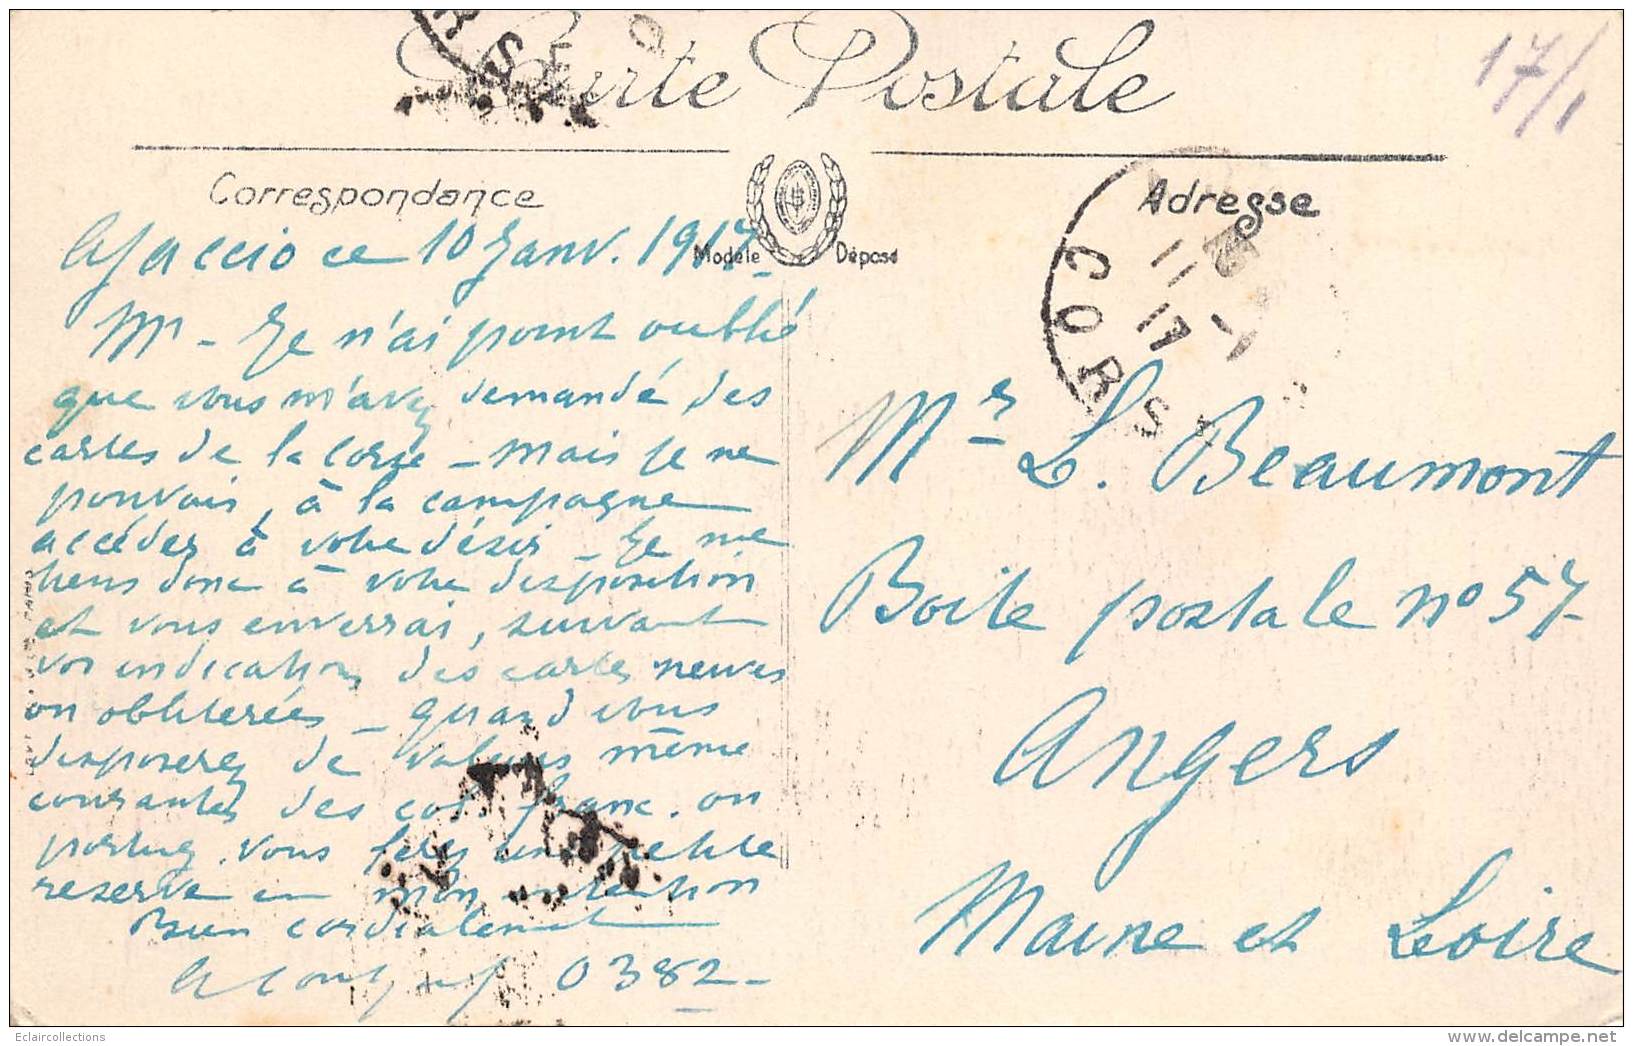 Carte Postale
17/1
Correspondance
Adresse
Modèle Déposé
Ajaccio ce 10 Janv. 1917 -
M - Je n'ai point oublié
que vous m'avez demandé des
cartes de la Corse - mais je ne
pouvais, à la campagne
accéder à votre désir - Je me
tiens donc à votre disposition
et vous enverrai, suivant
vos indications des cartes neuves
ou oblitérées - quand vous
disposerez de valeurs même
courantes des col. franc. ou
portug. vous ferez une petite
reserve en mon intention
Bien cordialement
0382 -
CORSE
11 - 1
17
Mr L. Beaumont
Boite postale no 57
Angers
Maine et Loire
Eclaircollections
www.delcampe.net